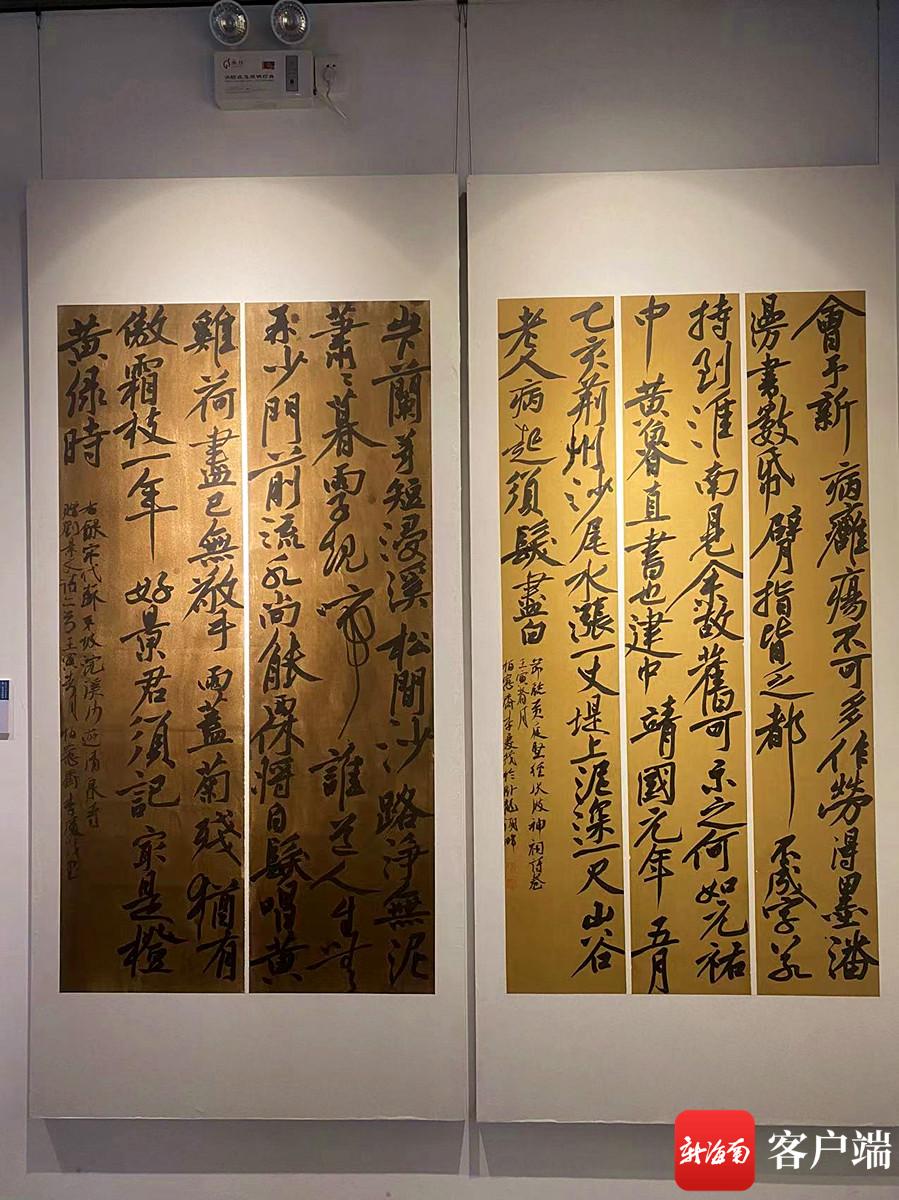 會予新病癰瘍不可多作勞得墨瀋
漫書數紙臂指皆乏都不成字若
持到淮南見余故舊可示之何如元祐
中黃魯直書也建中靖國元年五月
乙亥荊州沙尾水漲一丈堤上泥深一尺山谷
老人病起須髮盡白
節臨黃庭堅經伏波神祠詩卷
壬寅春月
山下蘭芽短浸溪松間沙路淨無泥
蕭〻暮雨子規啼誰道人生無
再少門前流水尚能休將白髮唱黃
雞荷盡已無擎雨蓋菊殘猶有
傲霜枝一年好景君須記最是橙
黃綠時
右錄宋代蘇東坡浣溪沙遊清泉寺
贈劉景文詩二首壬寅春月
新海南
客户端